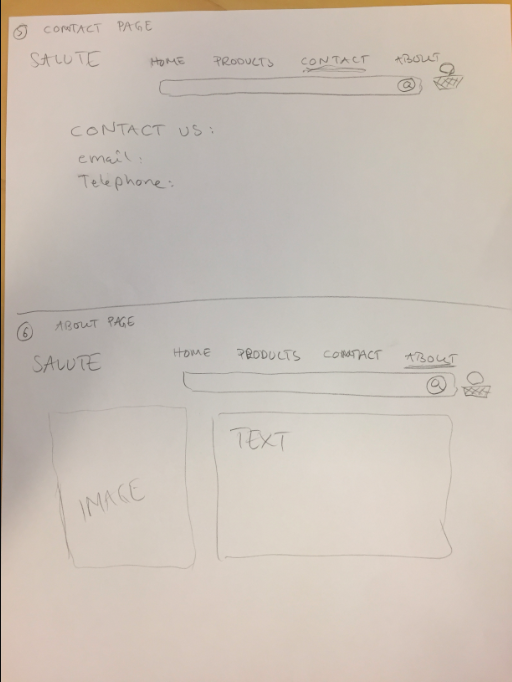 5 CONTACT PAGE
SALUTE HOME PRODUCTS CONTACT ABOUT
CONTACT US:
email:
Telephone:
6 ABOUT PAGE
SALUTE HOME PRODUCTS CONTACT ABOUT
TEXT
IMAGE